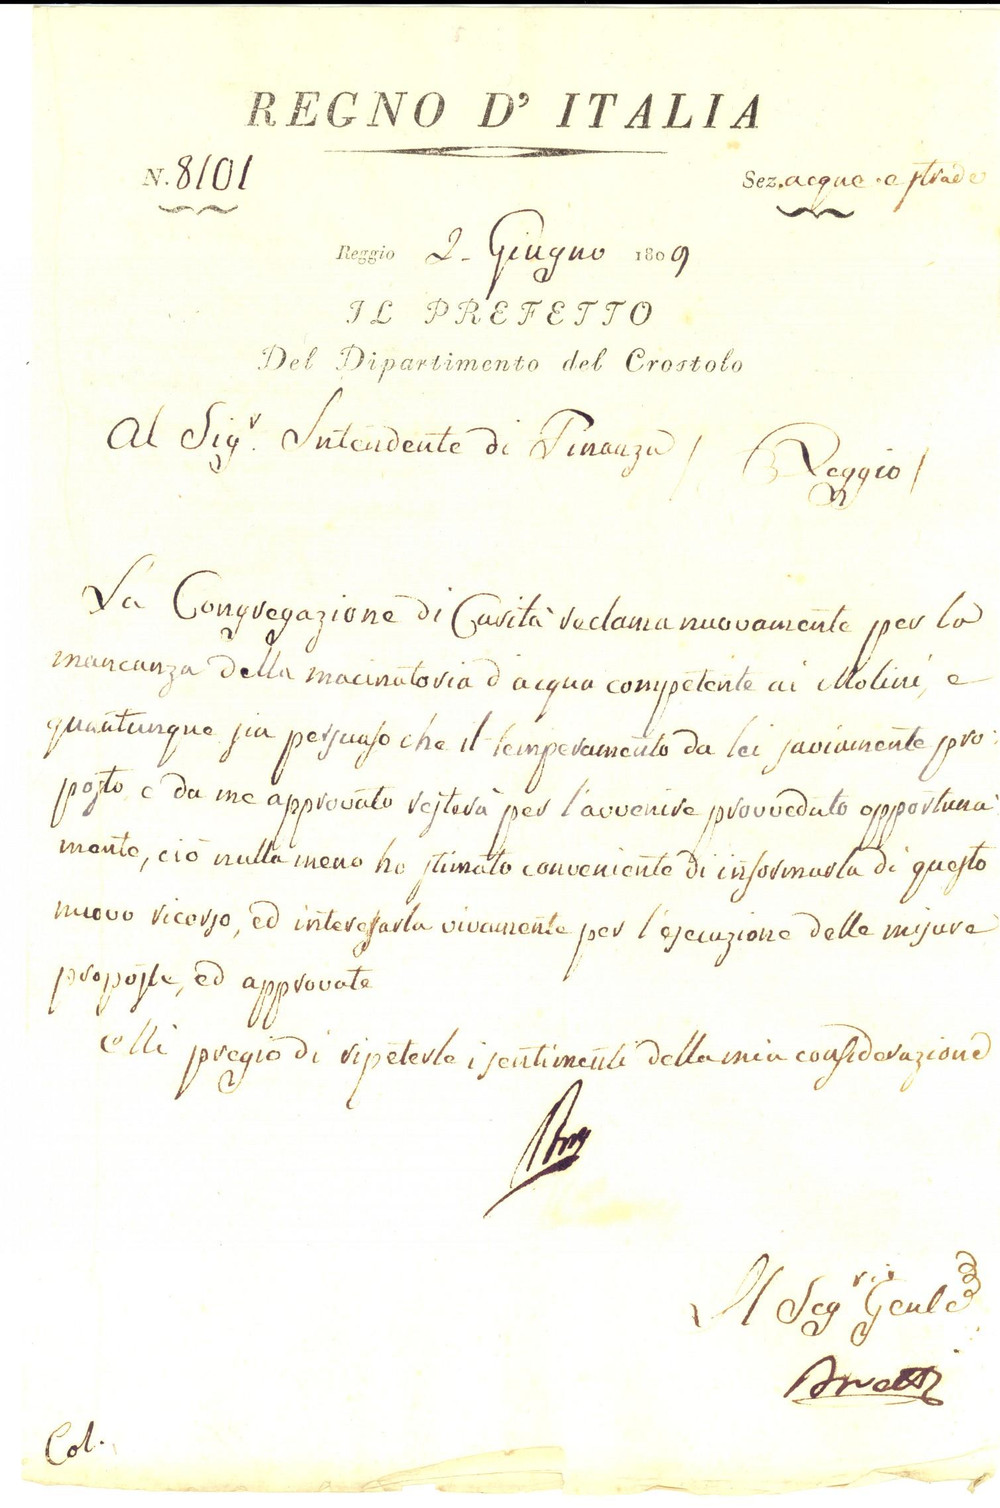 REGNO D' ITALIA
N. 8101
Sez. acque e strade
Reggio 2. Giugno 1809
IL PREFETTO
Del Dipartimento del Crostolo
Al Sigr. Intendente di Finanza / Reggio /
La Congregazione di Carità reclama nuovamente per la
mancanza della macinatoria d'acqua competente ai Molini, e
quantunque sia persuaso che il temperamento da lei saviamente pro:
posto, e da me approvato resterà per l'avvenire provveduto opportuna:
mente, ciò nulla meno ho stimato conveniente di informarla di questo
nuovo ricorso, ed interessarla vivamente per l'esecuzione delle misure
proposte, ed approvate
Mi pregio di ripeterle i sentimenti della mia considerazione
Il Segrio Genle
Col.